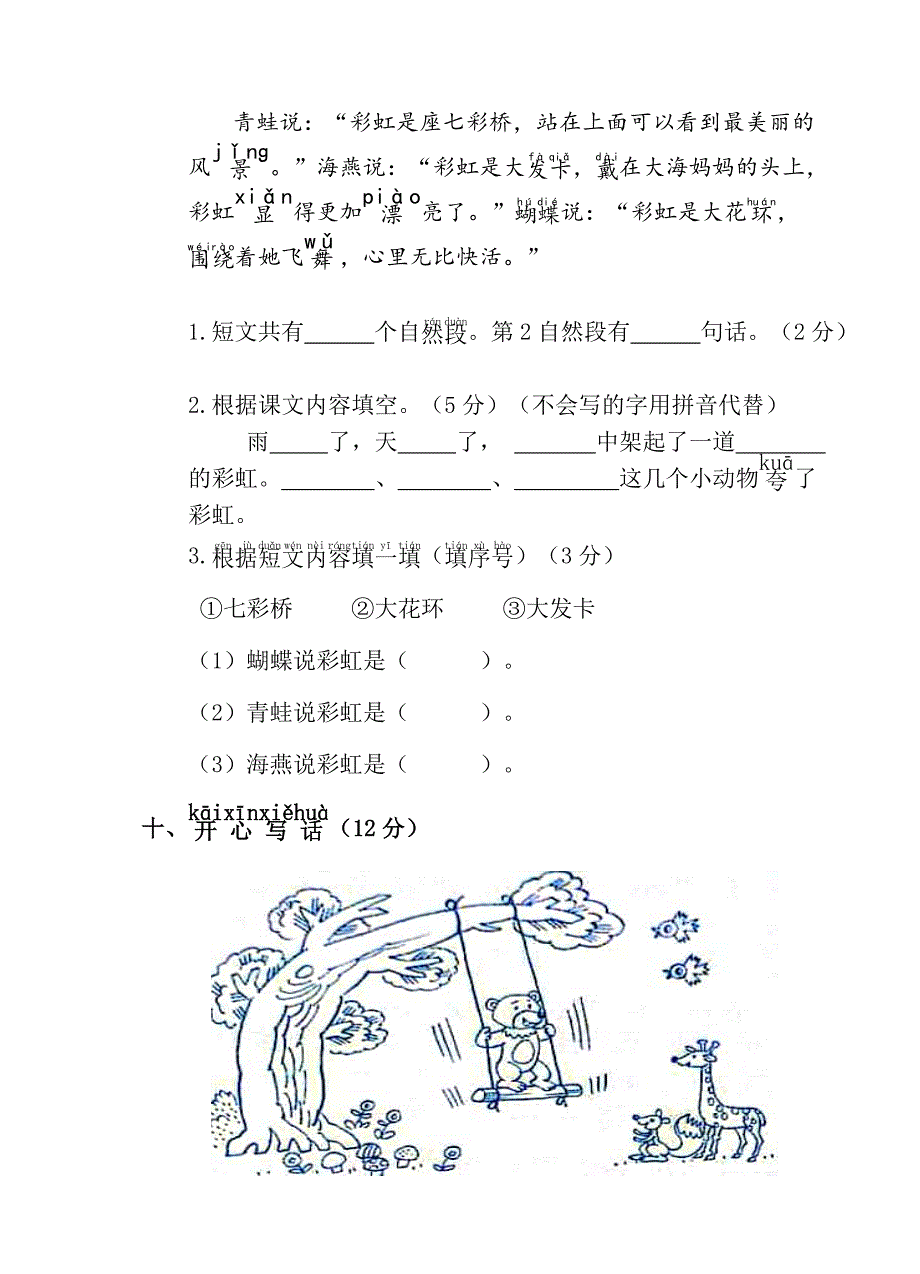 青蛙说：“彩虹是座七彩桥，站在上面可以看到最美丽的
jǐng
风景。”海燕说：“彩虹是大发卡，戴在大海妈妈的头上，
xiǎn piào hú dié huán
彩虹显得更加漂亮了。”蝴蝶说：“彩虹是大花环，
wéirào wǔ
围绕着她飞舞，心里无比快活。”
rán duàn
1.短文共有______个自然段。第2自然段有______句话。（2分）
2.根据课文内容填空。（5分）（不会写的字用拼音代替）
雨_____了，天_____了，_______中架起了一道________
kuā
的彩虹。________、________、_________这几个小动物夸了
彩虹。
gēn jù duǎn wén nèi róng tián yī tián tián xù hào
3.根据短文内容填一填（填序号）（3分）
①七彩桥 ②大花环 ③大发卡
（1）蝴蝶说彩虹是（ ）。
（2）青蛙说彩虹是（ ）。
（3）海燕说彩虹是（ ）。
kāixīnxiěhuà
十、开心写话（12分）